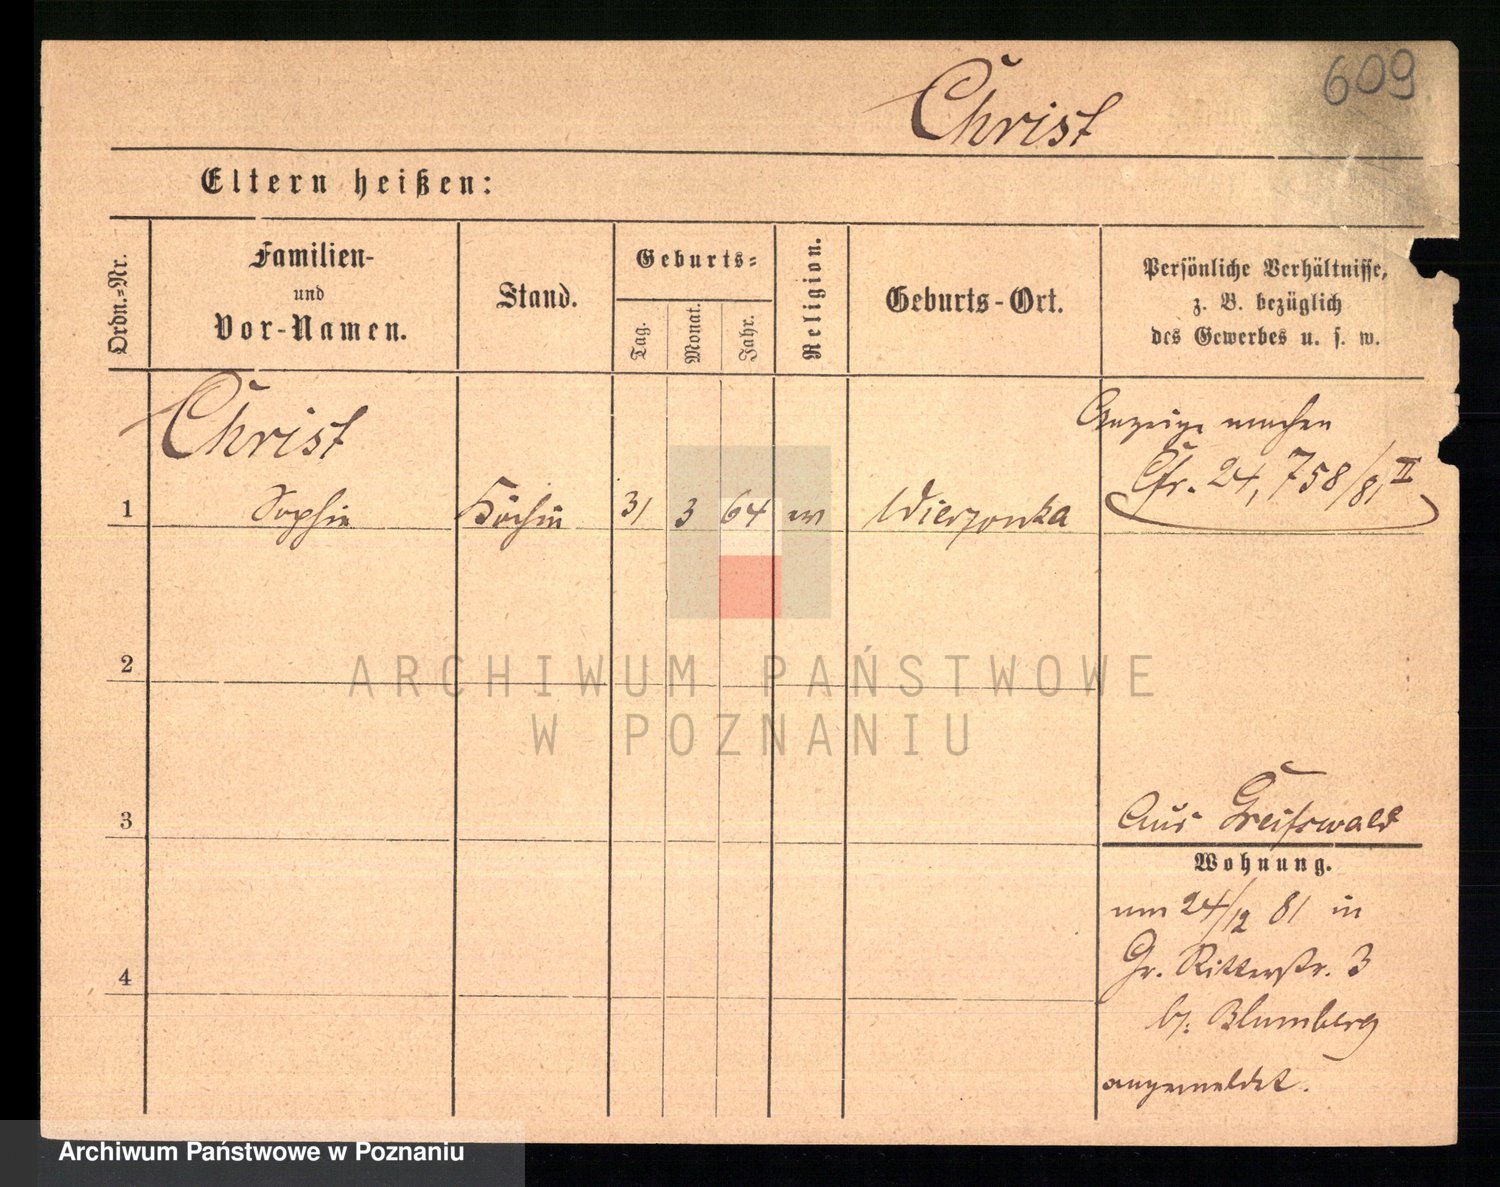 609
Christ
Eltern heißen:
Ordn.-Nr.
Familien-
und
Vor-Namen.
Stand.
Geburts-
Tag.
Monat.
Jahr.
Religion.
Geburts-Ort.
Persönliche Verhältnisse,
z. B. bezüglich
des Gewerbes u. s. w.
Christ
Anzeige machen
Cfr. 24,758/81 II
1 Sophie Köchin 31 3 64 Wierzonka
2
ARCHIWUM PAŃSTWOWE
W POZNANIU
3
Aus Greifswald
Wohnung.
um 24/12 81 in
Gr. Ritterstr. 3
4
b/: Blumberg
angemeldet.
Archiwum Państwowe w Poznaniu